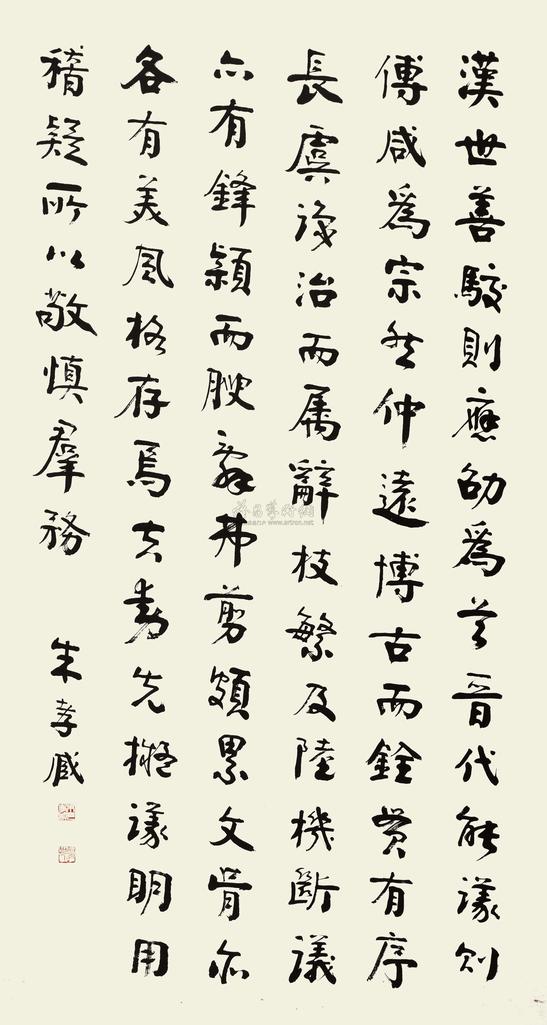 漢世善駮則應劭爲首晉代能議則
傅咸爲宗然仲遠博古而銓貫有序
長虞識治而属辭枝繁及陸機斷議
亦有鋒穎而腴辭弗剪頗累文骨亦
各有美風格存焉夫動先擬議明用
稽疑所以敬慎羣務
朱孝臧
www.artron.net